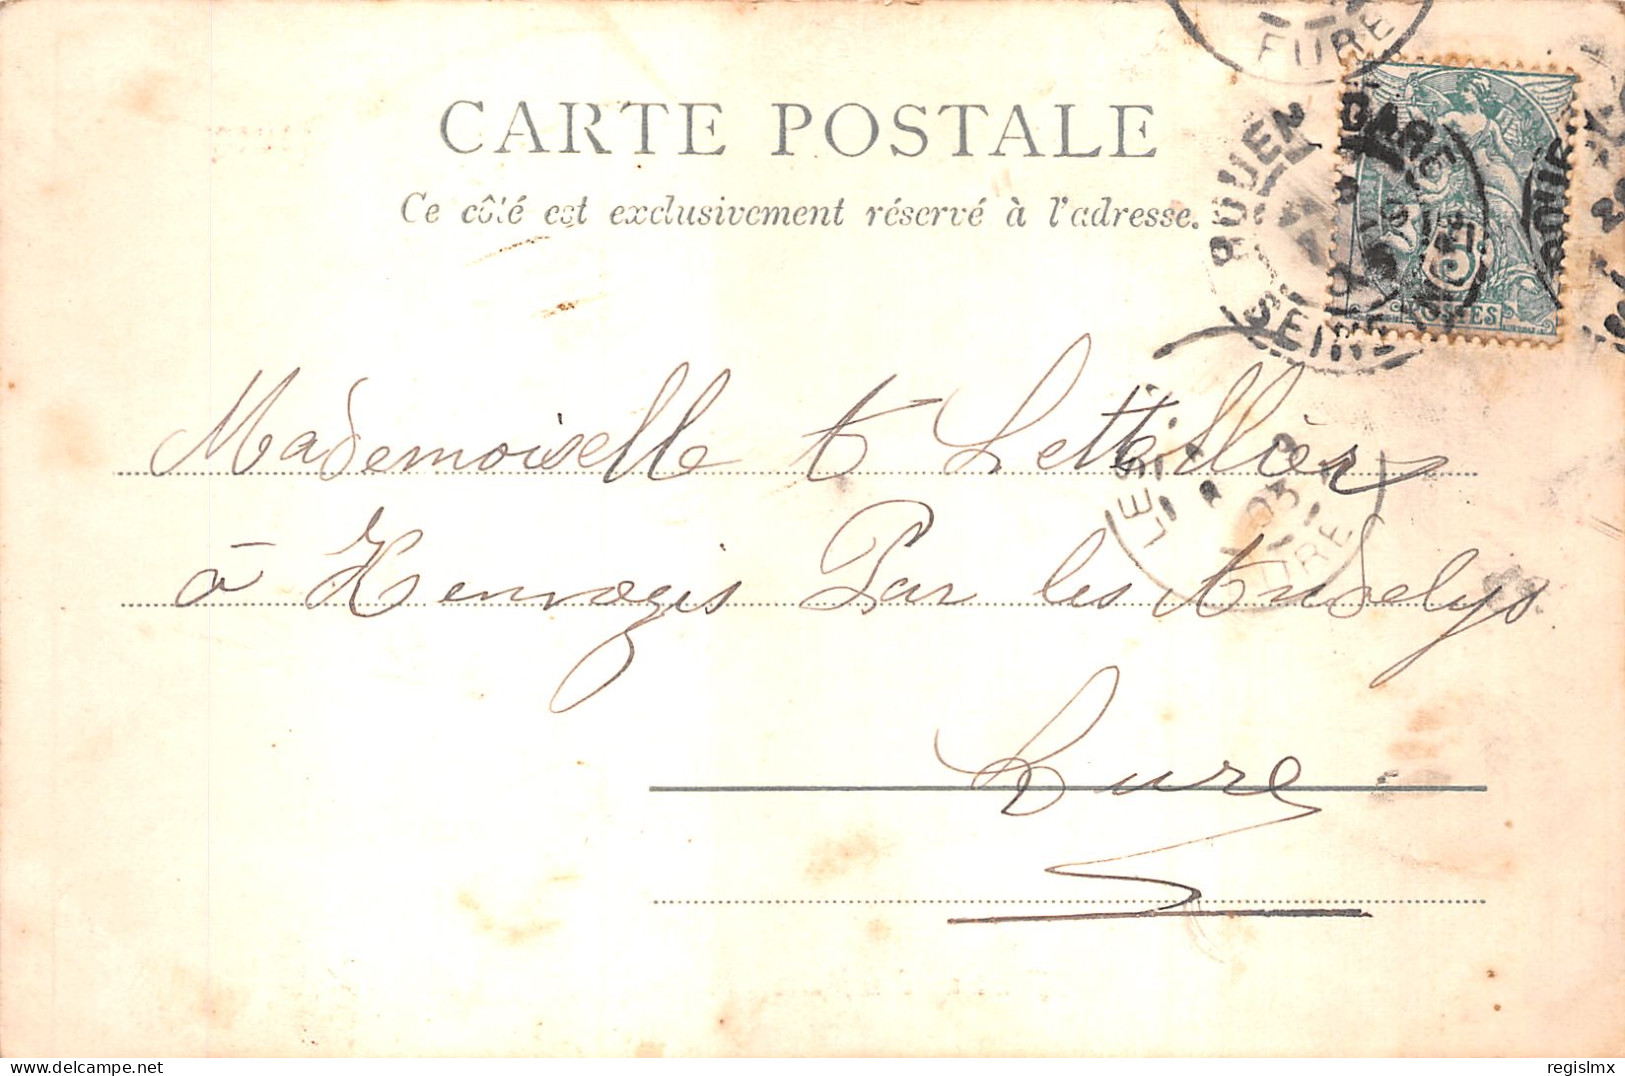 EURE
CARTE POSTALE
Ce côté est exclusivement réservé à l'adresse.
ROUEN GARE
SEINE INF
5
POSTES
Mademoiselle A Lettellier
à Hennezis Par les Andelys
Eure
LES
03
EURE
regislmx